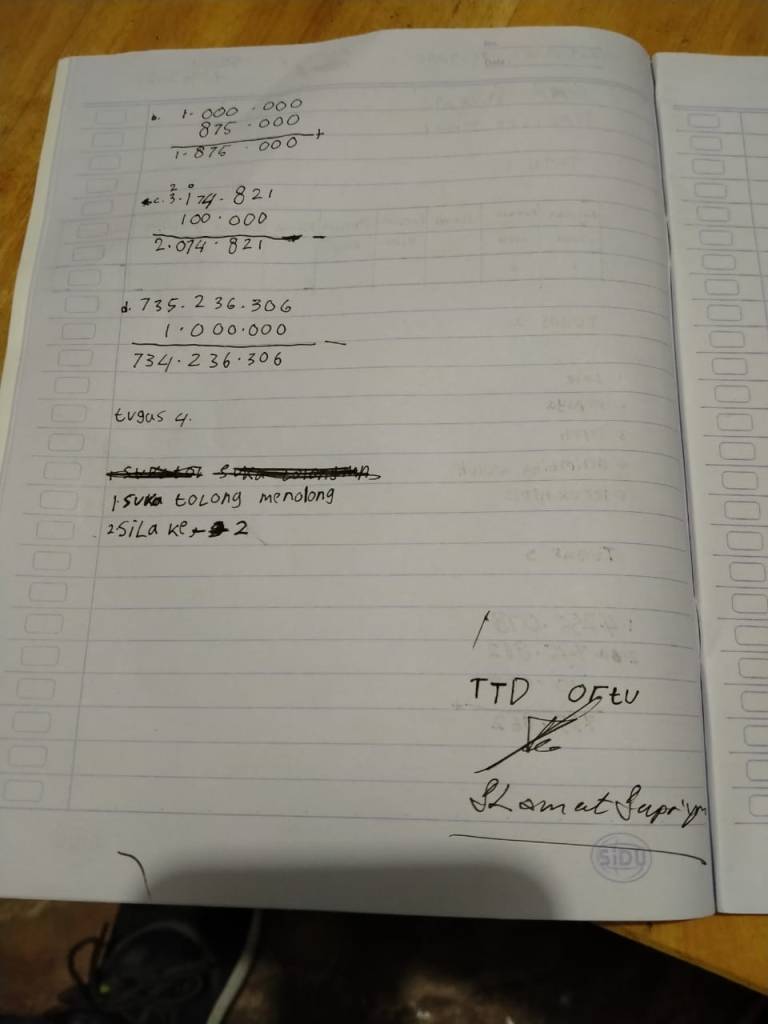 b. 1.000.000
875.000
+
1.875.000
c. 3.174.821
2 0
100.000
-
2.074.821
d. 735.236.306
1.000.000
-
734.236.306
tugas 4.
1. suka tolong menolong
2 Sila ke - 2
TTD ortu
Slamat
SiDU